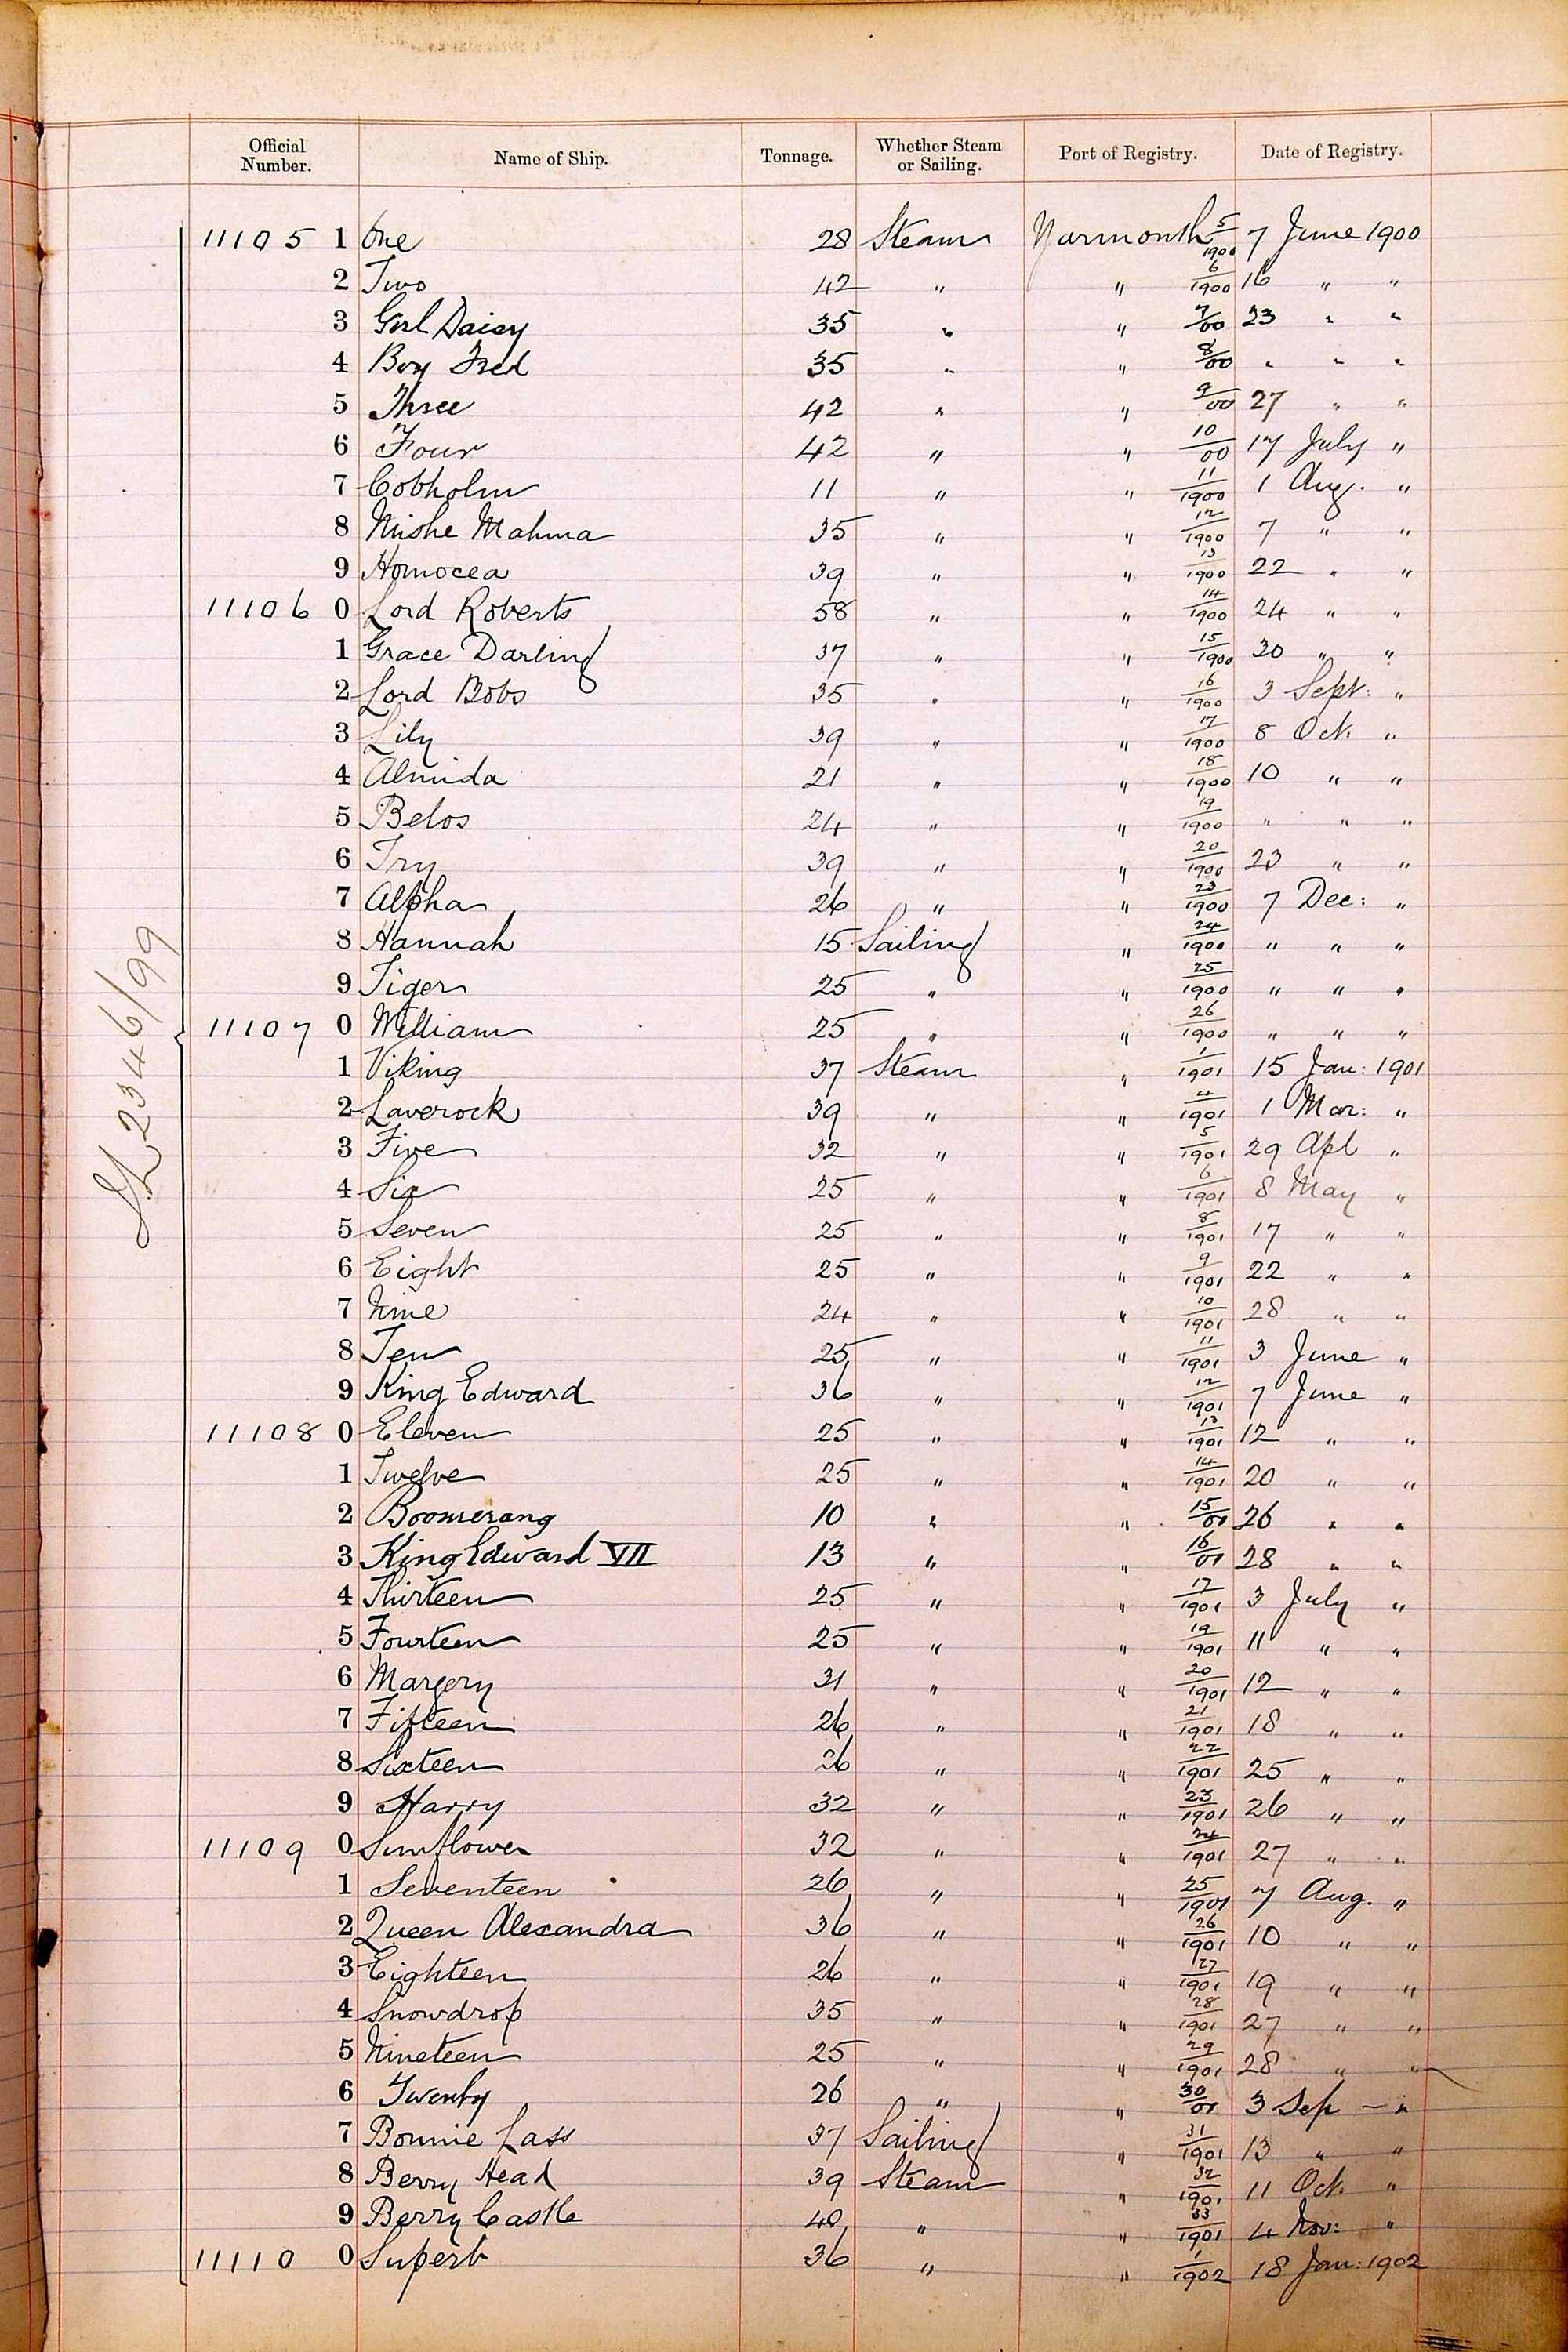 Official Number. Name of Ship. Tonnage. Whether Steam or Sailing. Port of Registry. Date of Registry.
11105 1 One 28 Steam Yarmouth 5/1900 7 June 1900
2 Two 42 " " 6/1900 16 " "
3 Girl Daisy 35 " " 7/00 23 " "
4 Boy Fred 35 " " 8/00 " " "
5 Three 42 " " 9/00 27 " "
6 Four 42 " " 10/00 17 July "
7 Cobholm 11 " " 11/1900 1 Aug. "
8 Mishe Mahma 35 " " 12/1900 7 " "
9 Homocea 39 " " 13/1900 22 " "
11106 0 Lord Roberts 58 " " 14/1900 24 " "
1 Grace Darling 37 " " 15/1900 30 " "
2 Lord Bobs 35 " " 16/1900 3 Sept: "
3 Lily 39 " " 17/1900 8 Oct: "
4 Almida 21 " " 18/1900 10 " "
5 Belos 24 " " 19/1900 " " "
6 Try 39 " " 20/1900 23 " "
7 Alpha 26 " " 23/1900 7 Dec: "
8 Hannah 15 Sailing " 24/1900 " " "
9 Tiger 25 " " 25/1900 " " "
11107 0 William 25 " " 26/1900 " " "
1 Viking 37 Steam " 1/1901 15 Jan: 1901
2 Laverock 39 " " 4/1901 1 Mar: "
3 Five 32 " " 5/1901 29 Apl "
4 Six 25 " " 6/1901 8 May "
5 Seven 25 " " 8/1901 17 " "
6 Eight 25 " " 9/1901 22 " "
7 Nine 24 " " 10/1901 28 " "
8 Ten 25 " " 11/1901 3 June "
9 King Edward 36 " " 12/1901 7 June "
11108 0 Eleven 25 " " 13/1901 12 " "
1 Twelve 25 " " 14/1901 20 " "
2 Boomerang 10 " " 15/01 26 " "
3 King Edward VII 13 " " 16/01 28 " "
4 Thirteen 25 " " 17/1901 3 July "
5 Fourteen 25 " " 19/1901 11 " "
6 Margery 31 " " 20/1901 12 " "
7 Fifteen 26 " " 21/1901 18 " "
8 Sixteen 26 " " 22/1901 25 " "
9 Harry 32 " " 23/1901 26 " "
11109 0 Sunflower 32 " " 24/1901 27 " "
1 Seventeen 26 " " 25/1901 7 Aug. "
2 Queen Alexandra 36 " " 26/1901 10 " "
3 Eighteen 26 " " 27/1901 19 " "
4 Snowdrop 35 " " 28/1901 27 " "
5 Nineteen 25 " " 29/1901 28 " "
6 Twenty 26 " " 30/01 3 Sep — "
7 Bonnie Lass 37 Sailing " 31/1901 13 " "
8 Berry Head 39 Steam " 32/1901 11 Oct. "
9 Berry Castle 40 " " 33/1901 4 Nov: "
11110 0 Superb 36 " " 1/1902 18 Jan: 1902
2346/99